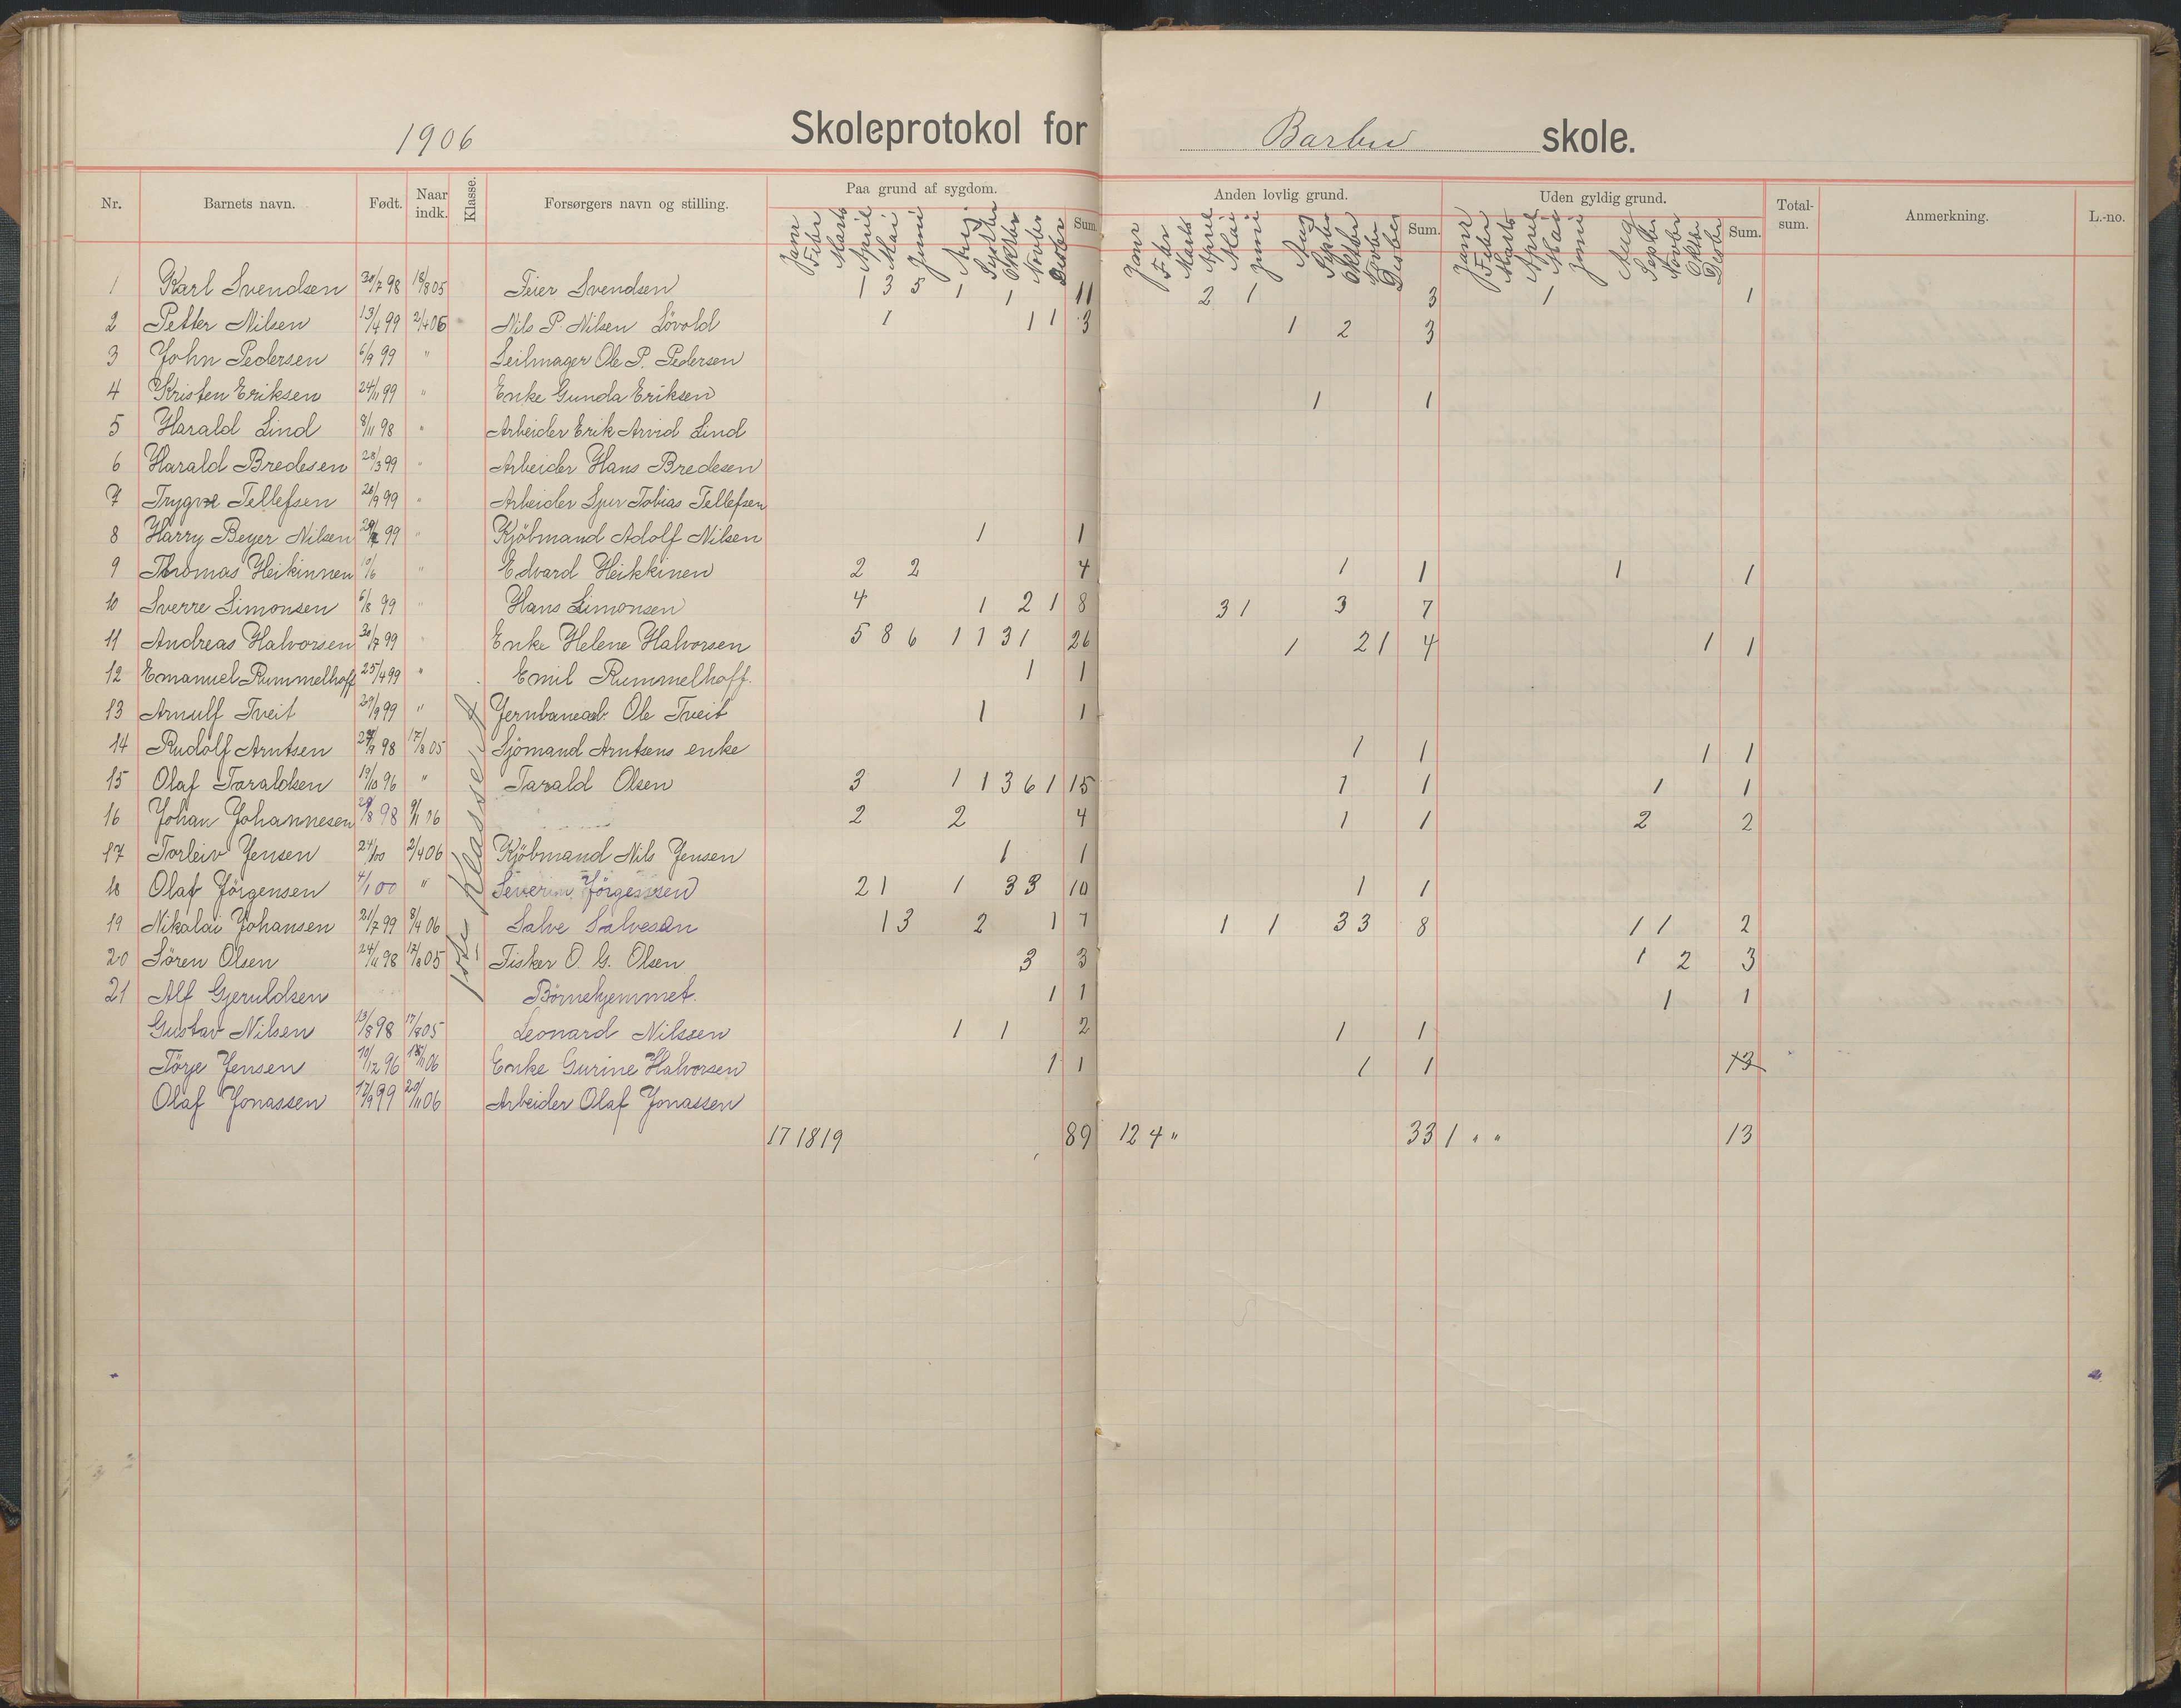 1906 Skoleprotokol for Barbu skole.
Nr. Barnets navn. Født. Naar indk. Klasse. Forsørgers navn og stilling. Paa grund af sygdom. Anden lovlig grund. Uden gyldig grund. Total-sum. Anmerkning. L.-no.
Janr Febr Marts April Mai Juni Aug Septbr Oktbr Novbr Desbr Sum. Janr Febr Marts April Mai Juni Aug Septbr Oktbr Novbr Desbr Sum. Janr Febr Marts April Mai Juni Aug Septbr Novbr Oktbr Desbr Sum.
1 Karl Svendsen 30/7 98 18/8 05 Feier Svendsen 1 3 5 1 1 11 2 1 3 1 1
2 Petter Nilsen 13/4 99 2/4 06 Nils P. Nilsen Lövold 1 1 1 3 1 2 3
3 John Pedersen 6/9 99 " Seilmager Ole P. Pedersen
4 Kristen Eriksen 24/11 99 " Enke Gunda Eriksen 1 1
5 Harald Lind 8/11 98 " Arbeider Erik Arvid Lind
6 Harald Bredesen 28/3 99 " Arbeider Hans Bredesen
7 Trygve Tellefsen 26/9 99 " Arbeider Sjur Tobias Tellefsen
8 Harry Beyer Nilsen 99 " Kjöbmand Adolf Nilsen 1 1
9 Thomas Heikinnen 10/6 " Edvard Heikkinen 2 2 4 1 1 1 1
10 Sverre Simonsen 6/8 99 " Hans Simonsen 4 1 2 1 8 3 1 3 7
11 Andreas Halvorsen 30/7 99 " Enke Helene Halvorsen 5 8 6 1 1 3 1 26 1 2 1 4 1 1
12 Emanuel Rummelhoff 25/4 99 " Emil Rummelhoff. 1 1
13 Arnulf Tveit 29/9 99 " Jernbanearb. Ole Tveit 1 1
14 Rudolf Arntsen 98 17/8 05 Sjömand Arntsens enke 1 1 1 1
15 Olaf Taraldsen 19/10 96 " Tarald Olsen 3 1 1 3 6 1 15 1 1 1 1
16 Johan Johannesen 28/8 98 9/1 06 2 2 4 1 1 2 2
17 Torleiv Jensen 24/1 00 2/4 06 Kjöbmand Nils Jensen 1 1
18 Olaf Jörgensen 4/1 00 " Severin Jörgensen 2 1 1 3 3 10 1 1
19 Nikolai Johansen 21/7 99 8/4 06 Salve Salvesen 1 3 2 1 7 1 1 3 3 8 1 1 2
20 Sören Olsen 24/11 98 17/8 05 Fisker O. G. Olsen 3 3 1 2 3
21 Alf Gjeruldsen Börnehjemmet. 1 1 1 1
Gustav Nilsen 13/8 98 17/8 05 Leonard Nilssen 1 1 2 1 1
Törje Jensen 10/12 96 06 Enke Gurine Halvorsen 1 1 1 1 13
Olaf Jonassen 17/9 99 20/11 06 Arbeider Olaf Jonassen
17 18 19 89 12 4 " 33 1 " " 13
klasse